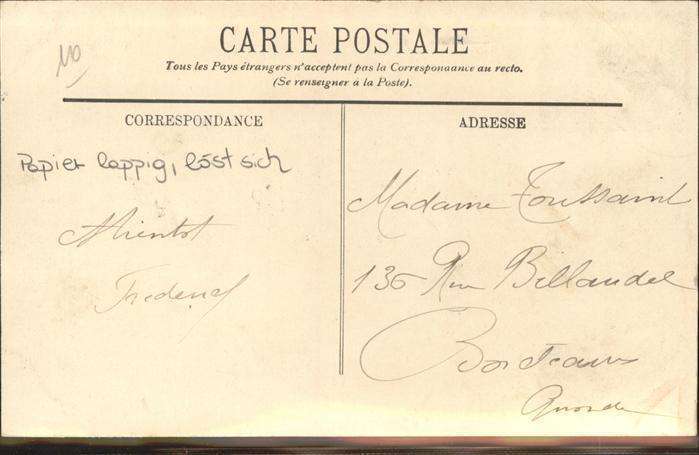 10
CARTE POSTALE
Tous les Pays étrangers n'acceptent pas la Correspondance au recto.
(Se renseigner à la Poste).
CORRESPONDANCE
ADRESSE
Papier lappig, löst sich
A bientot
Frederic
Madame Toussaint
136 Rue Billaudel
Bordeaux
Gironde